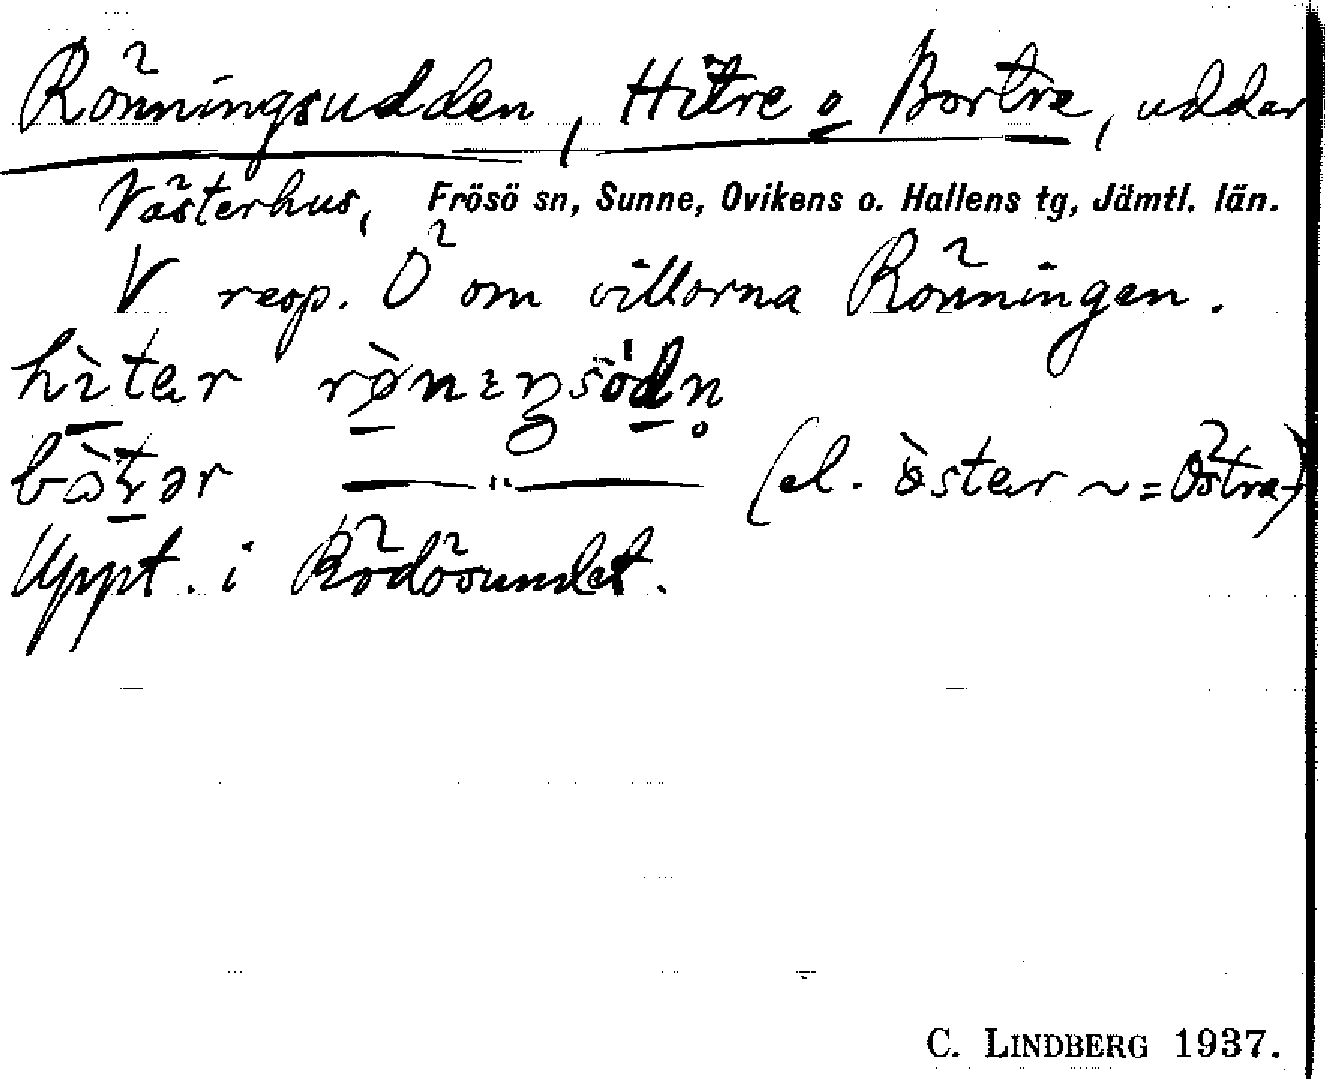 Rönningsudden, Hitre o Bortre, uddar
Västerhus, Frösö sn, Sunne, Ovikens o. Hallens tg, Jämtl. län.
V resp. Ö om villorna Rönningen.
hìter
bòtər —"— (el. öster ~ = Östra-)
Uppt. i Rödösundet.
C. LINDBERG 1937.